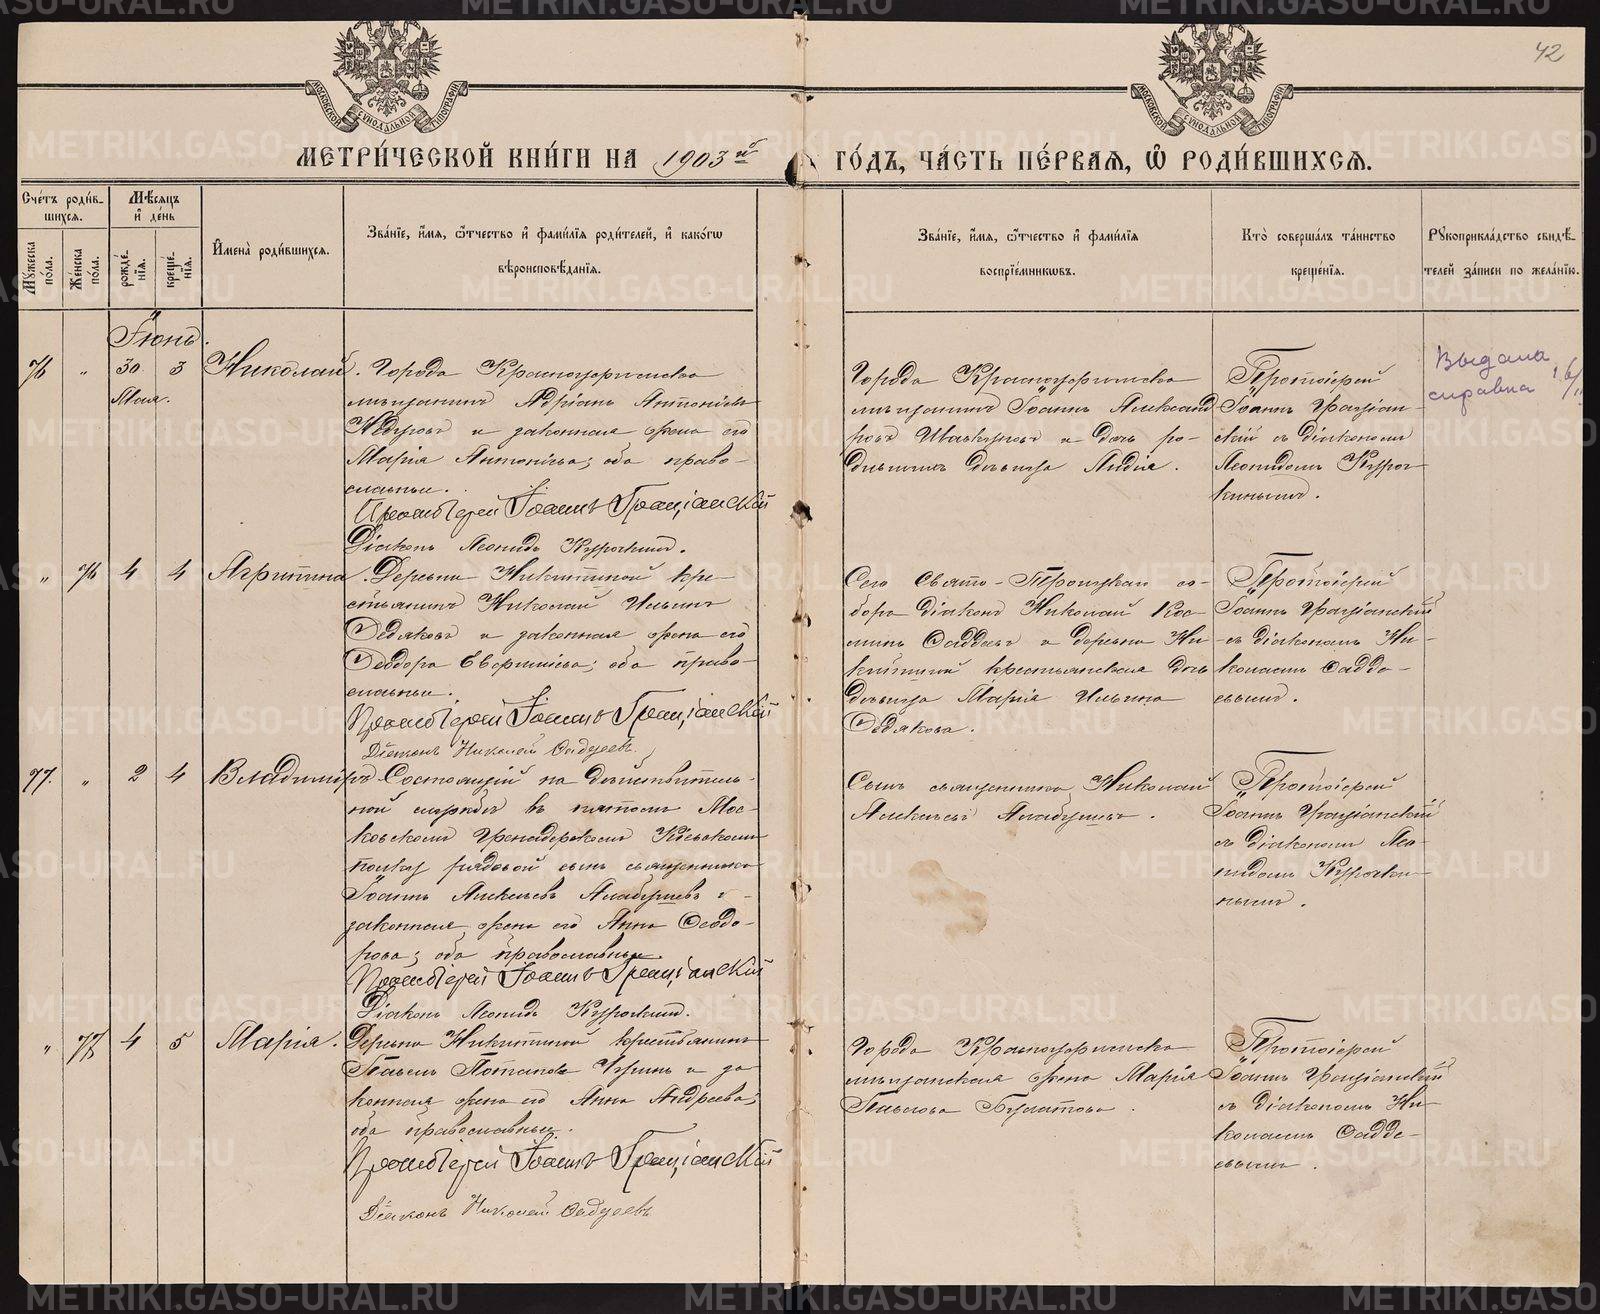 42
МЕТРИ́ЧЕСКОЙ КНИ́ГИ НА 1903 й ГО́ДЪ, ЧА́СТЬ ПЕ́РВАЯ, Ѡ РОДИ́ВШИХСЯ.
Сче́тъ роди́в-
шихся.
Мужеска пола.
Же́нска по́ла.
Мѣ́сяцъ
и де́нь
рожде́-
нія.
креще́-
нія.
Имена̀ роди́вшихся.
Зва́ніе, и́мя, ѻ́тчество и фами́лія роди́телей, и како́гѡ
вѣроисповѣ́данія.
Зва́ніе, и́мя, ѻ́тчество и фами́лія
воспріе́мниковъ.
Кто̀ соверша́лъ та́инство
креще́нія.
Рукоприкла́дство свидѣ́-
телей за́писи по жела́нію.
Іюнь.
76 " 30 3 Николай.
Мая.
Города Красноуфимска
мѣщанинъ Адріанъ Антоніевъ
и законная жена его
Марія Антоніева; оба право-
славные.
Протоіерей Іоаннъ Граціанскій
Діаконъ Леонидъ Курочкинъ.
Города Красноуфимска
мѣщанинъ Іоаннъ Александ-
ровъ и дочь ро-
дившихъ дѣвица Лидія.
Протоіерей
Іоаннъ Граціан-
скій съ діакономъ
Леонидомъ Куроч-
кинымъ.
Выдана
справка
" 76 4 4 Агрипина.
Деревни Никитиной кре-
стьянинъ Николай Ильинъ
Ѳедяковъ и законная жена его
Ѳеодора Евфиміева; оба право-
славные.
Протоіерей Іоаннъ Граціанскій
Діаконъ Николай Фаддеевъ.
Сего Свято-Троицкаго со-
бора діаконъ Николай Кос-
минъ Фаддеевъ и деревни Ни-
китиной крестьянская дочь
дѣвица Марія Ильина
Ѳедякова.
Протоіерей
Іоаннъ Граціанскій
съ діакономъ Ни-
колаемъ Фадде-
евымъ.
77. " 2 4 Владиміръ.
Состоящій на дѣйствитель-
ной службѣ въ пятомъ Мос-
ковскомъ Гренадерскомъ Кіевскомъ
полку рядовой сынъ священника
Іоаннъ Алексѣевъ Алабушевъ и
законная жена его Анна Ѳеодо-
рова; оба православные.
Протоіерей Іоаннъ Граціанскій
Діаконъ Леонидъ Курочкинъ.
Сынъ священника Николай
Алексѣевъ Алабушевъ.
Протоіерей
Іоаннъ Граціанскій
съ діакономъ Лео-
нидомъ Курочки-
нымъ.
" 77 4 5 Марія.
Деревни Никитиной крестьянинъ
Павелъ Потаповъ и за-
конная жена его Анна Андреева;
оба православные.
Протоіерей Іоаннъ Граціанскій
Діаконъ Николай Фаддеевъ
Города Красноуфимска
мѣщанская жена Марія
Павлова Булатова.
Протоіерей
Іоаннъ Граціанскій
съ діакономъ Ни-
колаемъ Фадде-
евымъ.
METRIKI.GASO-URAL.RU